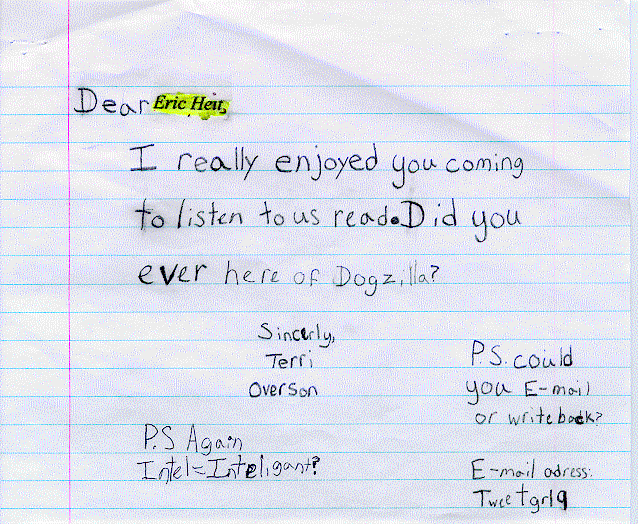 Dear Eric Heit,
I really enjoyed you coming
to listen to us read. Did you
ever here of Dogzilla?
Sincerly,
Terri
Overson
P.S. could
you E-mail
or write back?
P.S Again
Intel=Inteligant?
E-mail adress:
Tweetgrl9